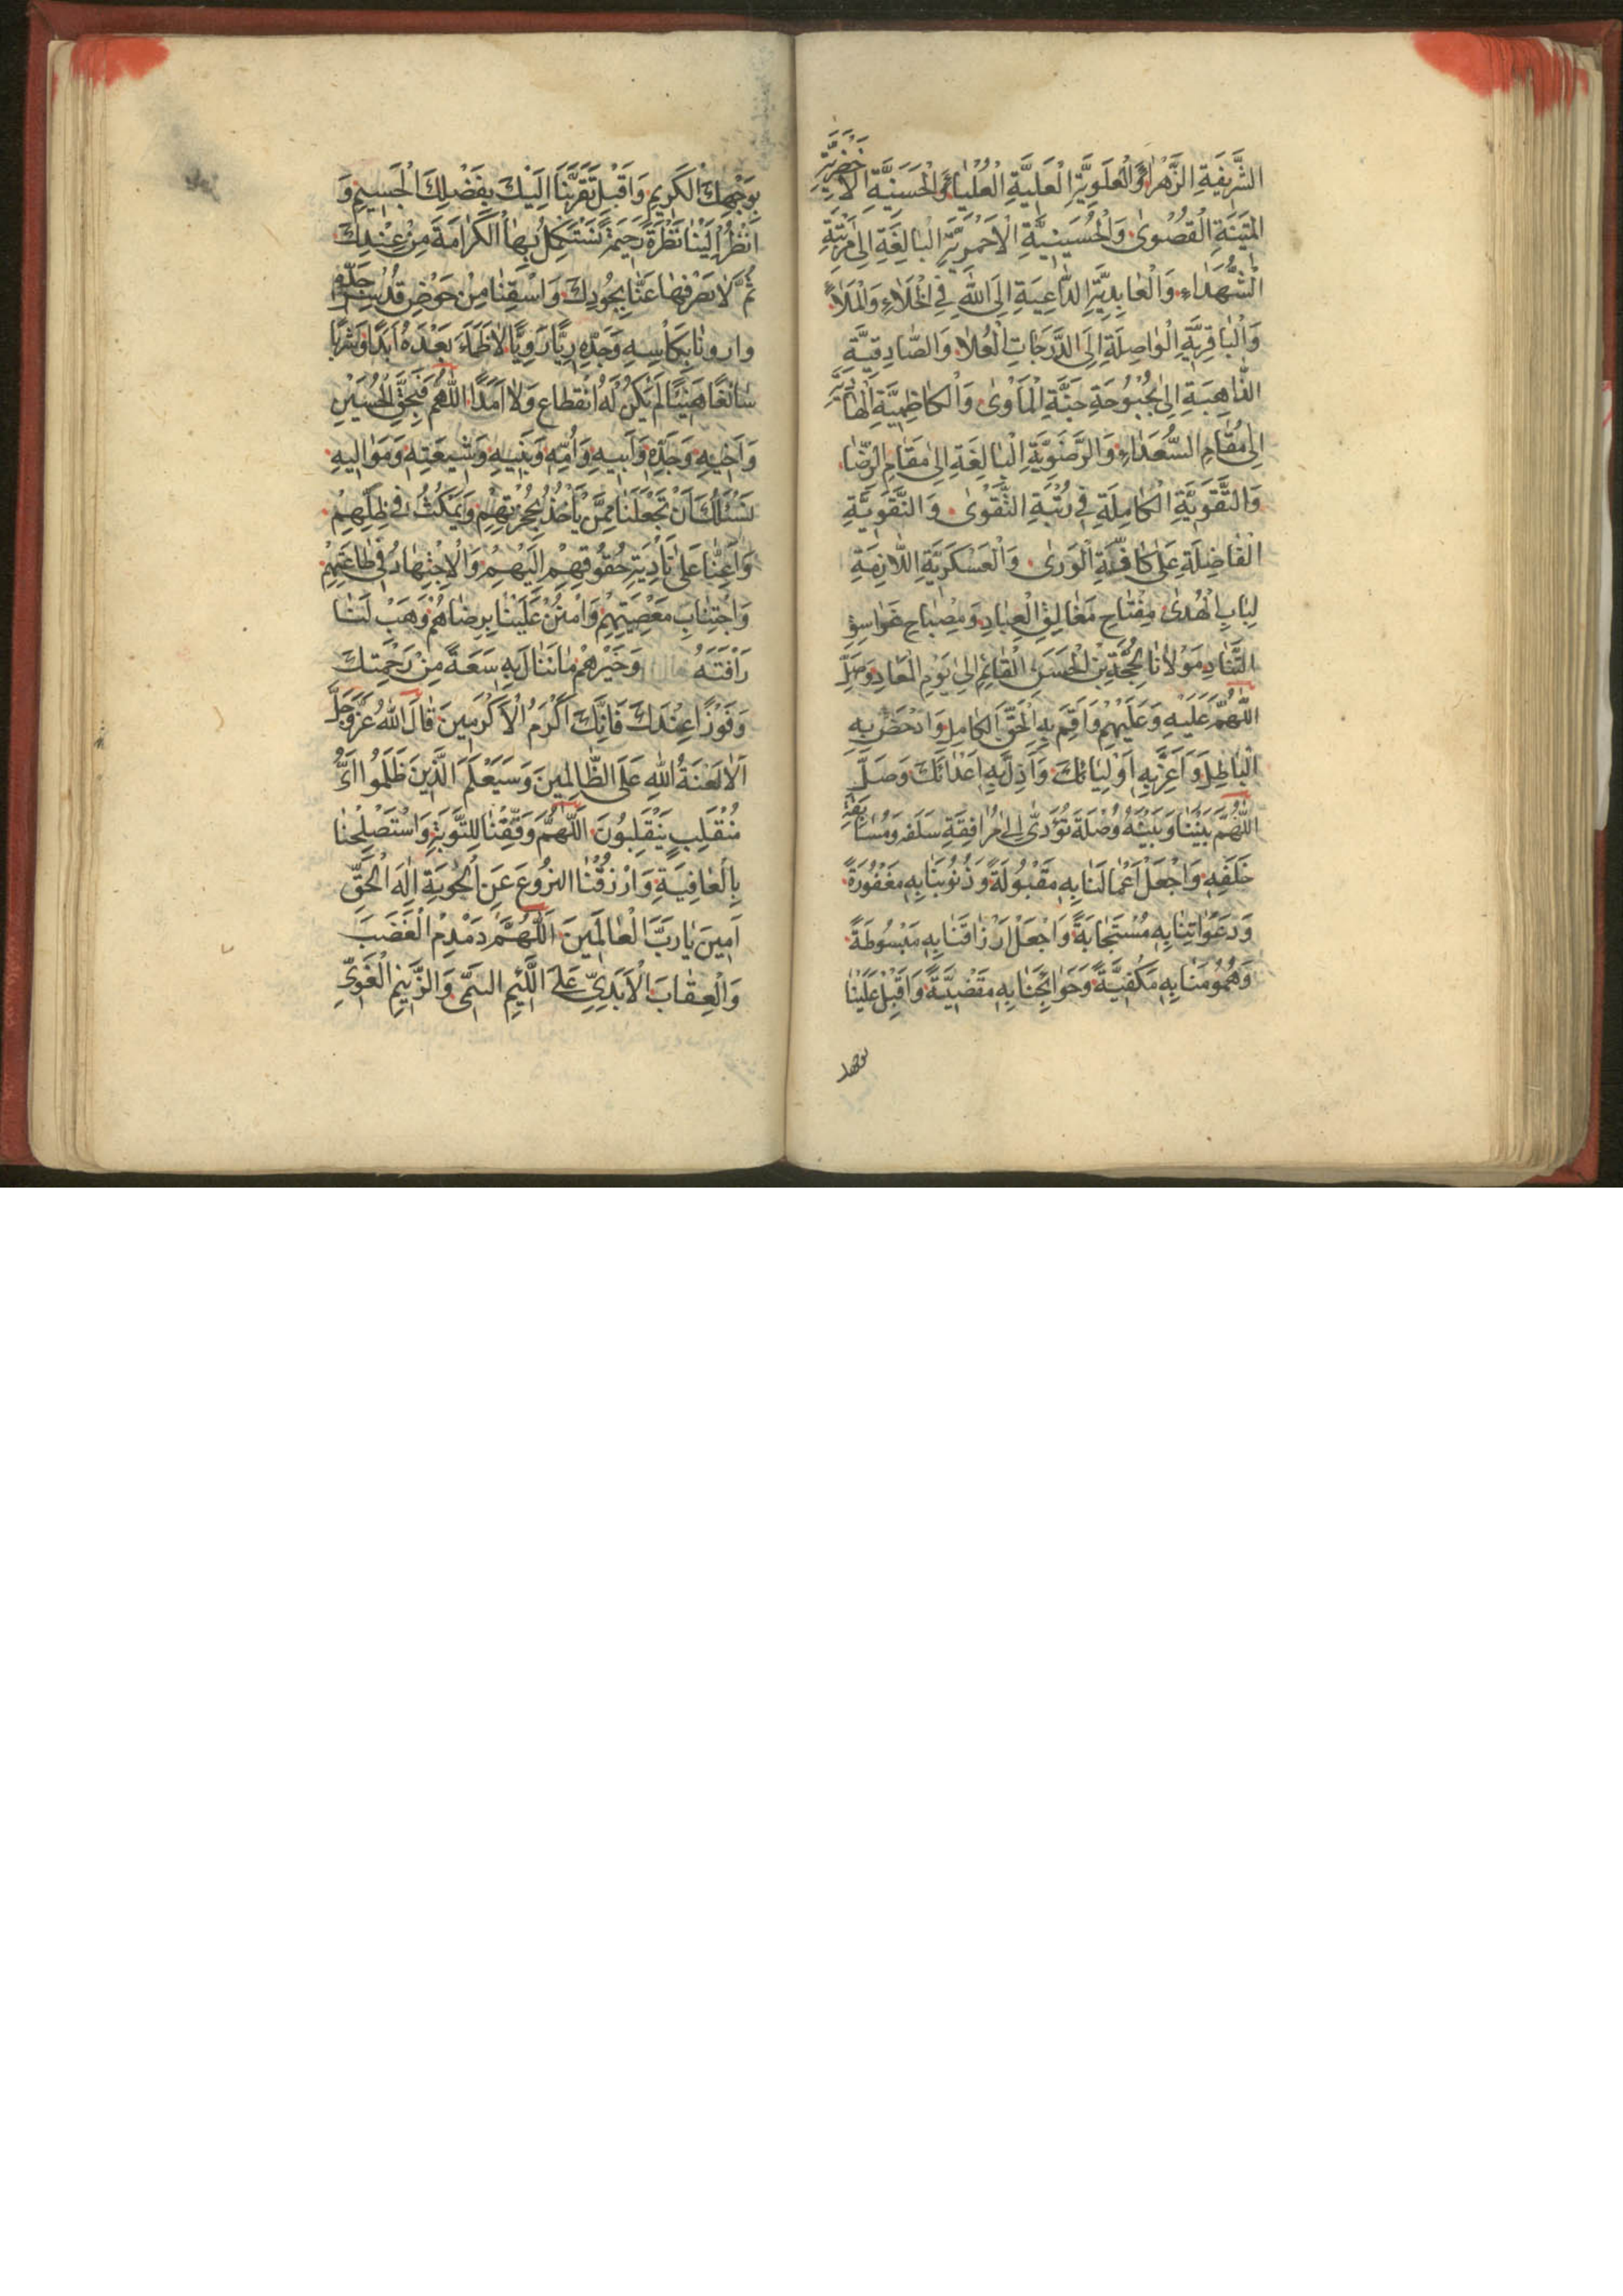 الشَّرِيفَةِ الزَّهْرَاءِ وَالْعَلَوِيَّةِ الْعَلِيَّةِ الْعُلْيَاءِ وَالْحَسَنِيَّةِ الْاَخْضَرِيَّةِ
الْمَتِينَةِ الْقُصْوىٰ وَالْحُسَيْنِيَّةِ الْاَحْمَرِيَّةِ الْبَالِغَةِ اِلىٰ مَرْتَبَةِ
الشُّهَدَاءِ وَالْعَابِدِيَّةِ الدَّاعِيَةِ اِلَى اللهِ فِى الْخَلَاءِ وَالْمَلَاءِ
وَالْبَاقِرِيَّةِ الْوَاصِلَةِ اِلَى الدَّرَجَاتِ الْعُلَا وَالصَّادِقِيَّةِ
الذَّاهِبَةِ اِلىٰ بُحْبُوحَةِ جَنَّةِ الْمَأْوىٰ وَالْكَاظِمِيَّةِ
اِلىٰ مَقَامِ السُّعَدَاءِ وَالرَّضَوِيَّةِ الْبَالِغَةِ اِلىٰ مَقَامِ الرِّضَا
وَالتَّقَوِيَّةِ الْكَامِلَةِ فِى رُتْبَةِ التَّقْوىٰ وَالنَّقَوِيَّةِ
الْفَاضِلَةِ عَلىٰ كَافَّةِ الْوَرىٰ وَالْعَسْكَرِيَّةِ اللَّازِمَةِ
لِبَابِ الْهُدىٰ مِفْتَاحِ مَغَالِيقِ الْعِبَادِ وَمِصْبَاحِ غَوَاسِقِ
التَّنَادِ مَوْلَانَا الْحُجَّةِ بْنِ الْحَسَنِ الْقَائِمِ اِلىٰ يَوْمِ الْمَعَادِ وَصَلِّ
اللّٰهُمَّ عَلَيْهِ وَعَلَيْهِمْ وَاَقِمْ بِهِ الْحَقَّ الْكَامِلَ وَادْحَضْ بِهِ
الْبَاطِلَ وَاَعِزَّ بِهِ اَوْلِيَائَكَ وَاَذِلَّ بِهِ اَعْدَائَكَ وَصَلِّ
اللّٰهُمَّ بَيْنَنَا وَبَيْنَهُ وُصْلَةً تُؤَدِّى اِلىٰ مُرَافَقَةِ سَلَفِهِ وَمُسَابَقَةِ
خَلَفِهِ وَاجْعَلْ اَعْمَالَنَا بِهِ مَقْبُولَةً وَذُنُوبَنَا بِهِ مَغْفُورَةً
وَدَعَوَاتِنَا بِهِ مُسْتَجَابَةً وَاجْعَلْ اَرْزَاقَنَا بِهِ مَبْسُوطَةً
وَهُمُومَنَا بِهِ مَكْفِيَّةً وَحَوَائِجَنَا بِهِ مَقْضِيَّةً وَاَقْبِلْ عَلَيْنَا
بوجهك
بِوَجْهِكَ الْكَرِيمِ وَاَقْبَلْ تَقَرُّبَنَا اِلَيْكَ بِفَضْلِكَ الْجَسِيمِ وَ
انْظُرْ اِلَيْنَا نَظْرَةً رَحِيمَةً نَسْتَكْمِلُ بِهَا الْكَرَامَةَ مِنْ عِنْدِكَ
ثُمَّ لَا تَصْرِفْهَا عَنَّا بِجُودِكَ وَاسْقِنَا مِنْ حَوْضِ قُدْسِ جَدِّهِ
وارونا بِكَأْسِهِ وَجَدِّهِ رِيًّا رَوِيًّا لَا ظَمَأَ بَعْدَهُ اَبَدًا وَشَرَابًا
سَائِغًا هَنِيئًا لَمْ يَكُنْ لَهُ انْقِطَاعٌ وَلَا اَمَدًا اللّٰهُمَّ فَبِحَقِّ الْحُسَيْنِ
وَاَخِيهِ وَجَدِّهِ وَاَبِيهِ وَاُمِّهِ وَبَنِيهِ وَشِيعَتِهِ وَمَوَالِيهِ
نَسْئَلُكَ اَنْ تَجْعَلَنَا مِمَّنْ يَأْخُذُ بِحُجْزَتِهِمْ وَيَمْكُثُ فِى ظِلِّهِمْ
وَاَعِنَّا عَلىٰ تَأْدِيَةِ حُقُوقِهِمْ اِلَيْهِمْ وَالْاِجْتِهَادِ فِى طَاعَتِهِمْ
وَاجْتِنَابِ مَعْصِيَتِهِمْ وَامْنُنْ عَلَيْنَا بِرِضَاهُمْ وَهَبْ لَنَا
رَأْفَتَهُ وَخَيْرَهُمْ مَا نَنَالُ بِهِ سَعَةً مِنْ رَحْمَتِكَ
وَفَوْزًا عِنْدَكَ فَاِنَّكَ اَكْرَمُ الْاَكْرَمِينَ قَالَ اللهُ عَزَّ وَجَلَّ
اَلَا لَعْنَةُ اللهِ عَلَى الظَّالِمِينَ وَسَيَعْلَمُ الَّذِينَ ظَلَمُوا اَىَّ
مُنْقَلَبٍ يَنْقَلِبُونَ اللّٰهُمَّ وَفِّقْنَا لِلتَّوْبَةِ وَاسْتَصْلِحْنَا
بِالْعَافِيَةِ وَارْزُقْنَا النُّزُوعَ عَنِ الْحَوْبَةِ اِلٰهَ الْحَقِّ
آمِينَ يَا رَبَّ الْعَالَمِينَ اللّٰهُمَّ دَمْدِمِ الْغَضَبَ
وَالْعِقَابَ الْاَبَدِىَّ عَلَى اللَّئِيمِ وَالزَّنِيمِ الْغَوِىِّ